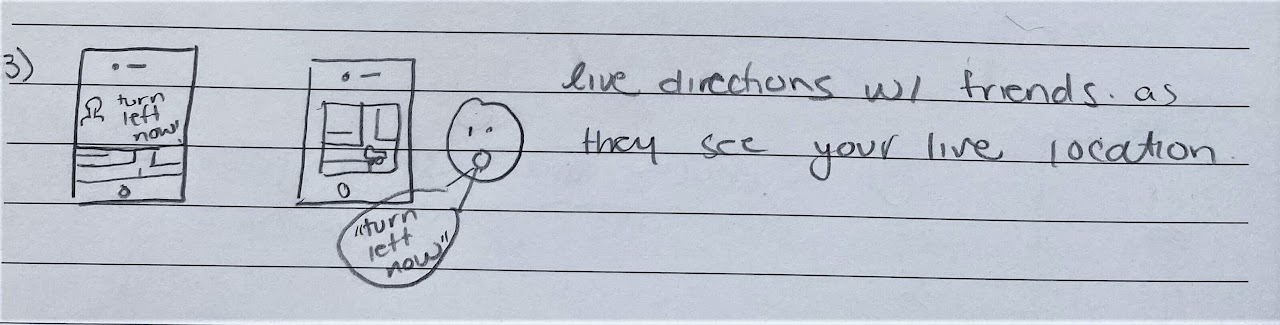 3)
turn
left
now!
"turn
left
now"
live directions w/ friends. as
they see your live location.